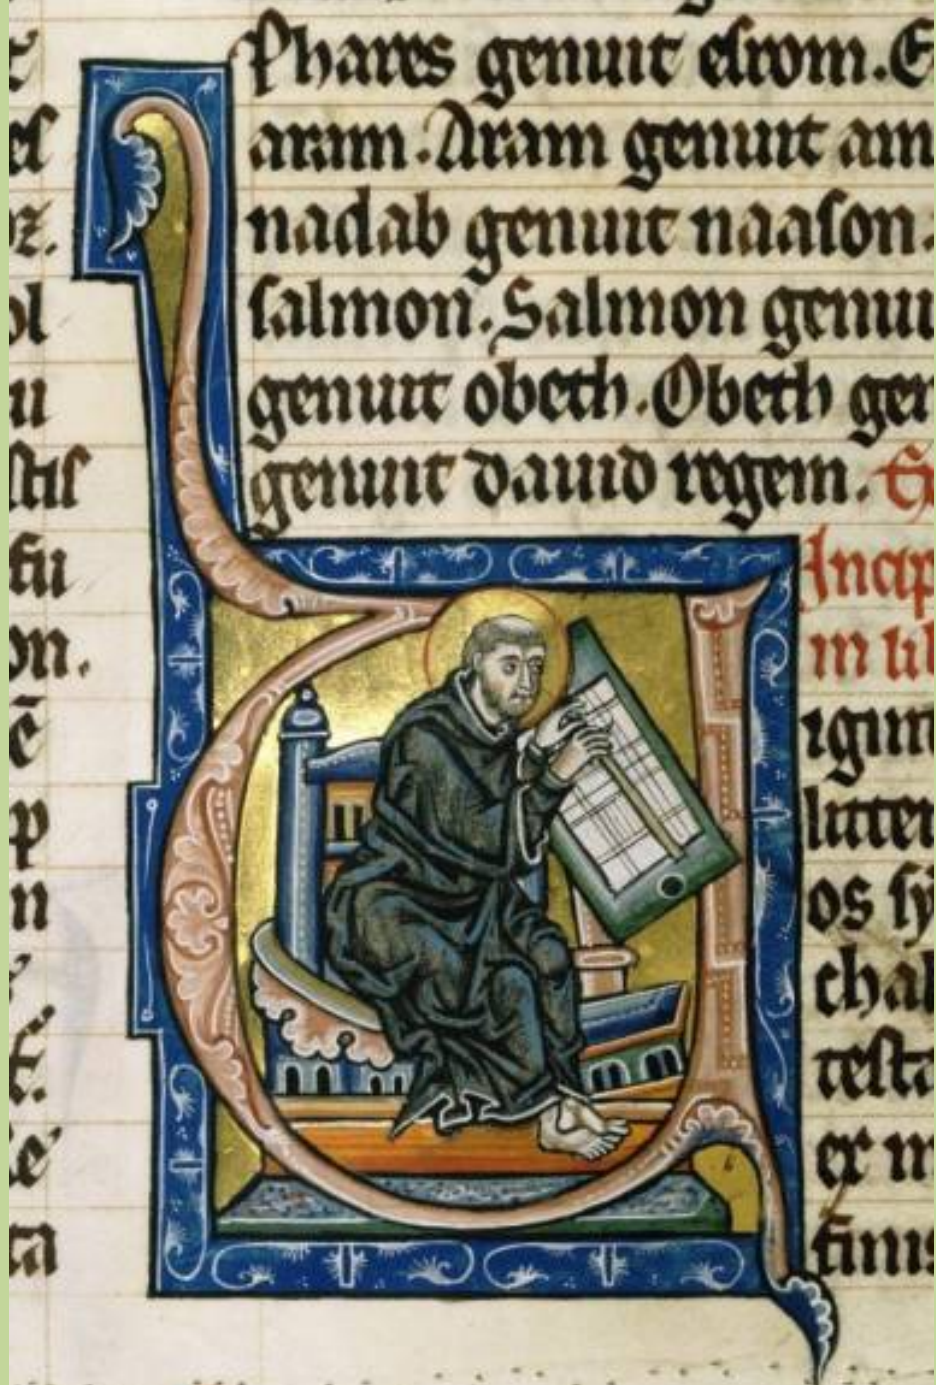 Phares genuit esrom. E
aram. Aram genuit am
nadab genuit naason.
salmon. Salmon genui
genuit obeth. Obeth gen
genuit dauid regem.
Incip
in lib
igin
litter
os sy
chal
testa
ex m
finis